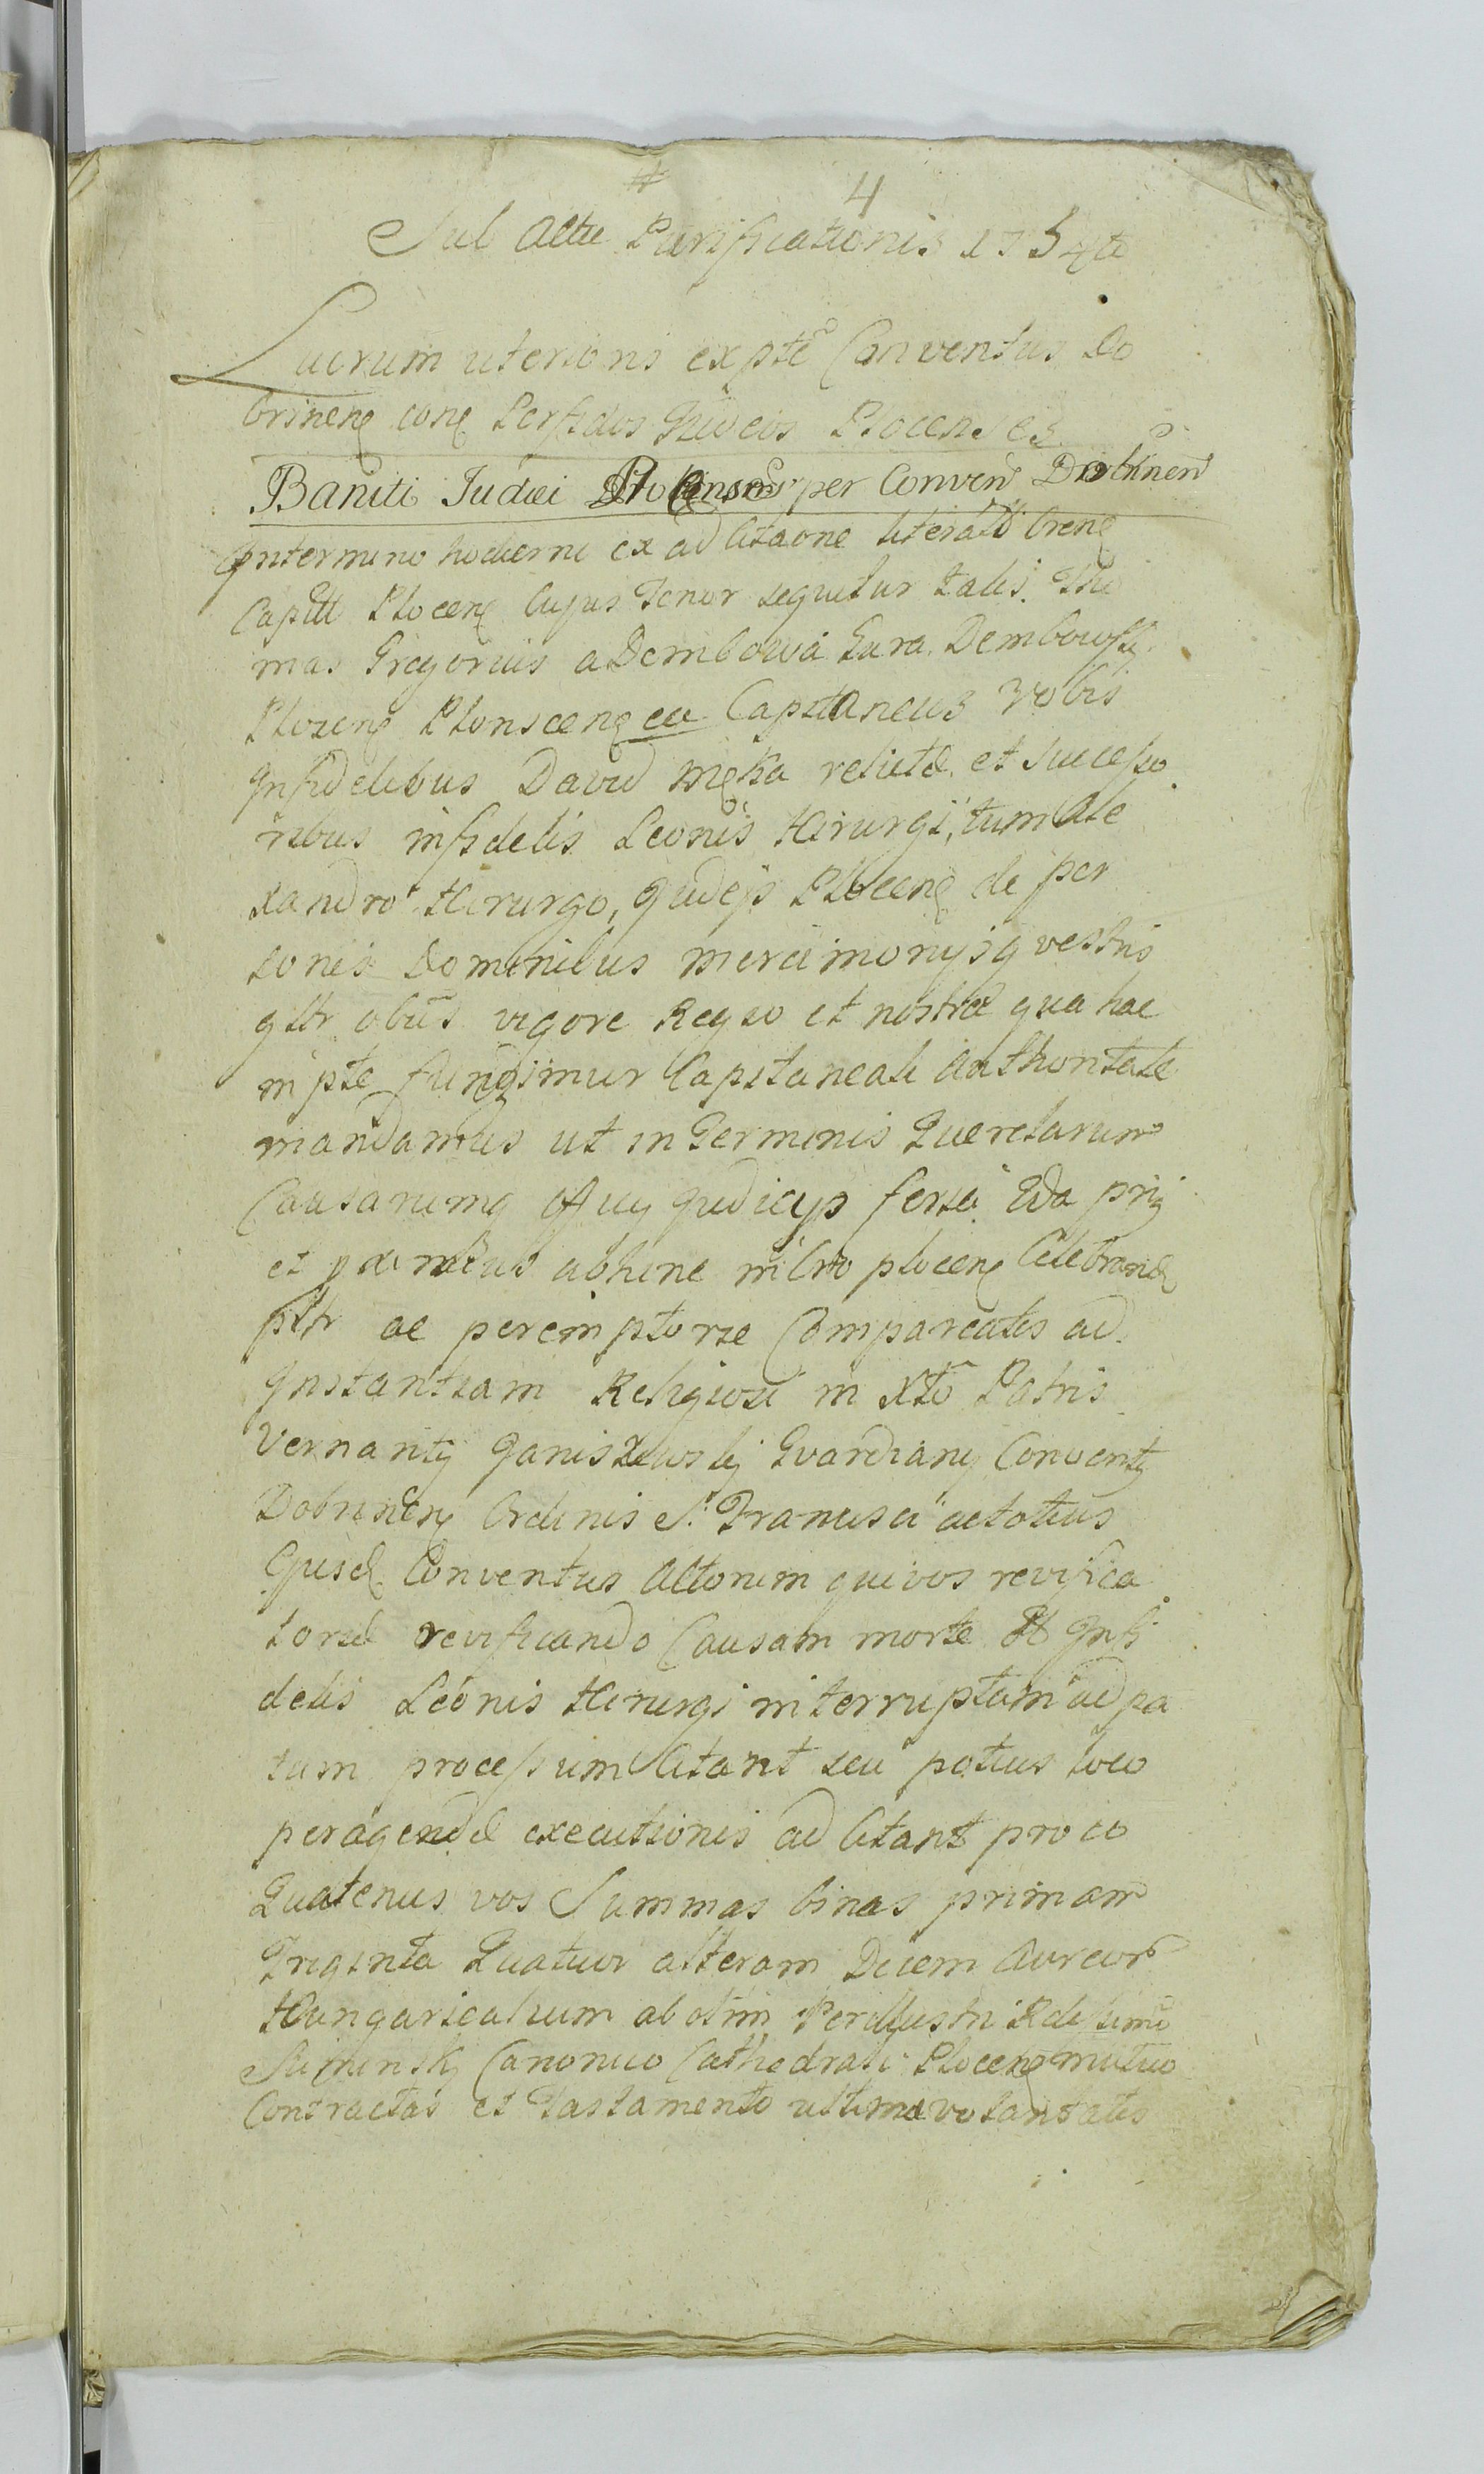 4
Sub Actu Purificationis 1754to
Lucrum ulterioris ex pte Conventus Do
brinen con Perfidos Judeos Plocenses
Baniti Judæi Plocenses per Conven Dobrinen
In termino hodierni ex ad Citaone literali Cren
Capitt Plocen Cujus Tenor sequitur talis. Tho
mas Gregorius a Dembowa Gura Dembowski
Plocen Plonscen ea Capitaneus Vobis
Infidelibus David relictæ et Successo
ribus infidelis Leonis Hirurgi, tum Ale
xandro Hirurgo, Judeis Plocen de per
sonis Dominibus mercimonijsq vestris
gltr obus vigore Regio et nostræ qua hac
in pte fungimur Capitaneali Authoritate
mandamus ut in Terminis Querelarum
Causarumq Offii Judicijs feria 2da prij
et proximius abhinc in Cstro plocen Celebrand
pltr ac peremptorie Compareatis ad
Instantiam Religiosi in Xto Patris
Vernanty Janiszewskij Gvardiany Conventy
Dobrinen Ordinis S. Francisci ac totius
Ejusd Conventus Actorum qui vos revifica
toriæ revificando Causam morte Infi
delis Leonis Hirurgi interruptam ad pa
tum processum Citant seu potius loco
peragendæ executionis ad Citant pro eo
Quatenus vos Summas binas primam
Triginta Quatuor alteram Decem Aureor
Hungaricalium ab olim Perillustri Rdissimo
Suminskij Canonico Cathedrali Plocen mutuo
Contractas et Tastamento ultimæ voluntatis